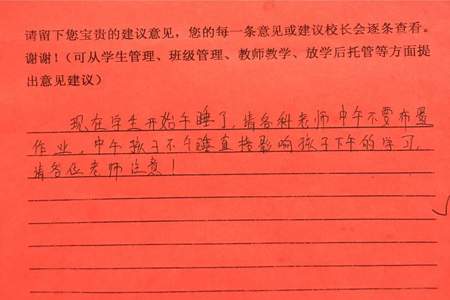 请留下您宝贵的建议意见，您的每一条意见或建议校长会逐条查看。
谢谢！（可从学生管理、班级管理、教师教学、放学后托管等方面提
出意见建议）
现在学生开始午睡了，请各科老师中午不要布置
作业，中午孩子不午睡直接影响孩子下午的学习，
请各位老师注意！